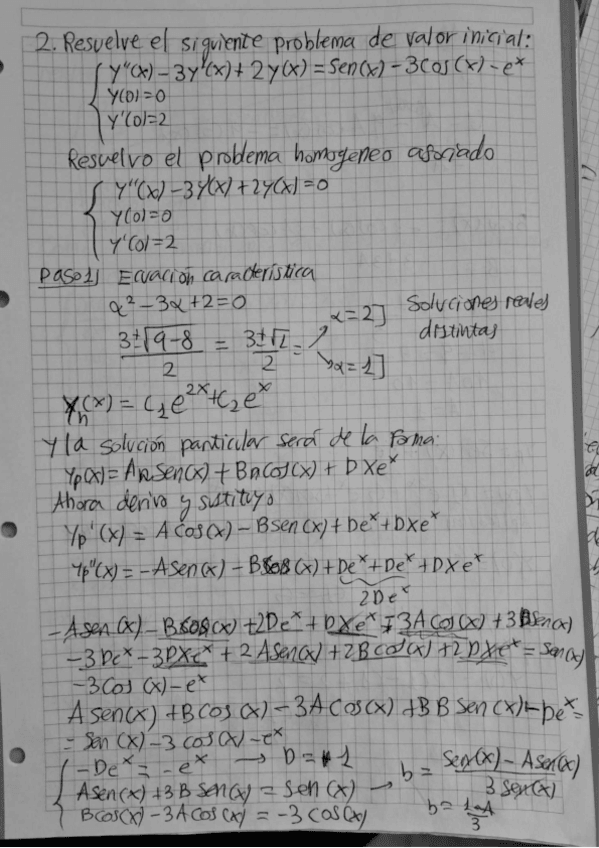 2. Resuelve el siguiente problema de valor inicial:
y''(x) - 3y'(x) + 2y(x) = sen(x) - 3cos(x) - e^x
y(0) = 0
y'(0) = 2
Resuelvo el problema homogeneo asociado
y''(x) - 3y'(x) + 2y(x) = 0
y(0) = 0
y'(0) = 2
Paso 1) Ecuación característica
α² - 3α + 2 = 0
(3 ± √(9-8))/2 = (3 ± √1)/2 = α = 2] α = 1] Soluciones reales distintas
y_h(x) = C1 e^2x + C2 e^x
Y la solución particular será de la forma:
yp(x) = A sen(x) + B cos(x) + D x e^x
Ahora derivo y sustituyo
yp'(x) = A cos(x) - B sen(x) + De^x + Dxe^x
yp''(x) = -A sen(x) - B cos(x) + De^x + De^x + Dxe^x
2De^x
-A sen(x) - B cos(x) + 2De^x + Dxe^x - 3A cos(x) + 3B sen(x)
-3De^x - 3Dxe^x + 2A sen(x) + 2B cos(x) + 2Dxe^x = sen(x)
-3cos(x) - e^x
A sen(x) + B cos(x) - 3A cos(x) + 3B sen(x) - De^x =
= sen(x) - 3cos(x) - e^x
-De^x = -e^x → D = 1
A sen(x) + 3B sen(x) = sen(x) → b = (sen(x) - A sen(x))/(3 sen(x))
B cos(x) - 3A cos(x) = -3cos(x) b = (1-A)/3